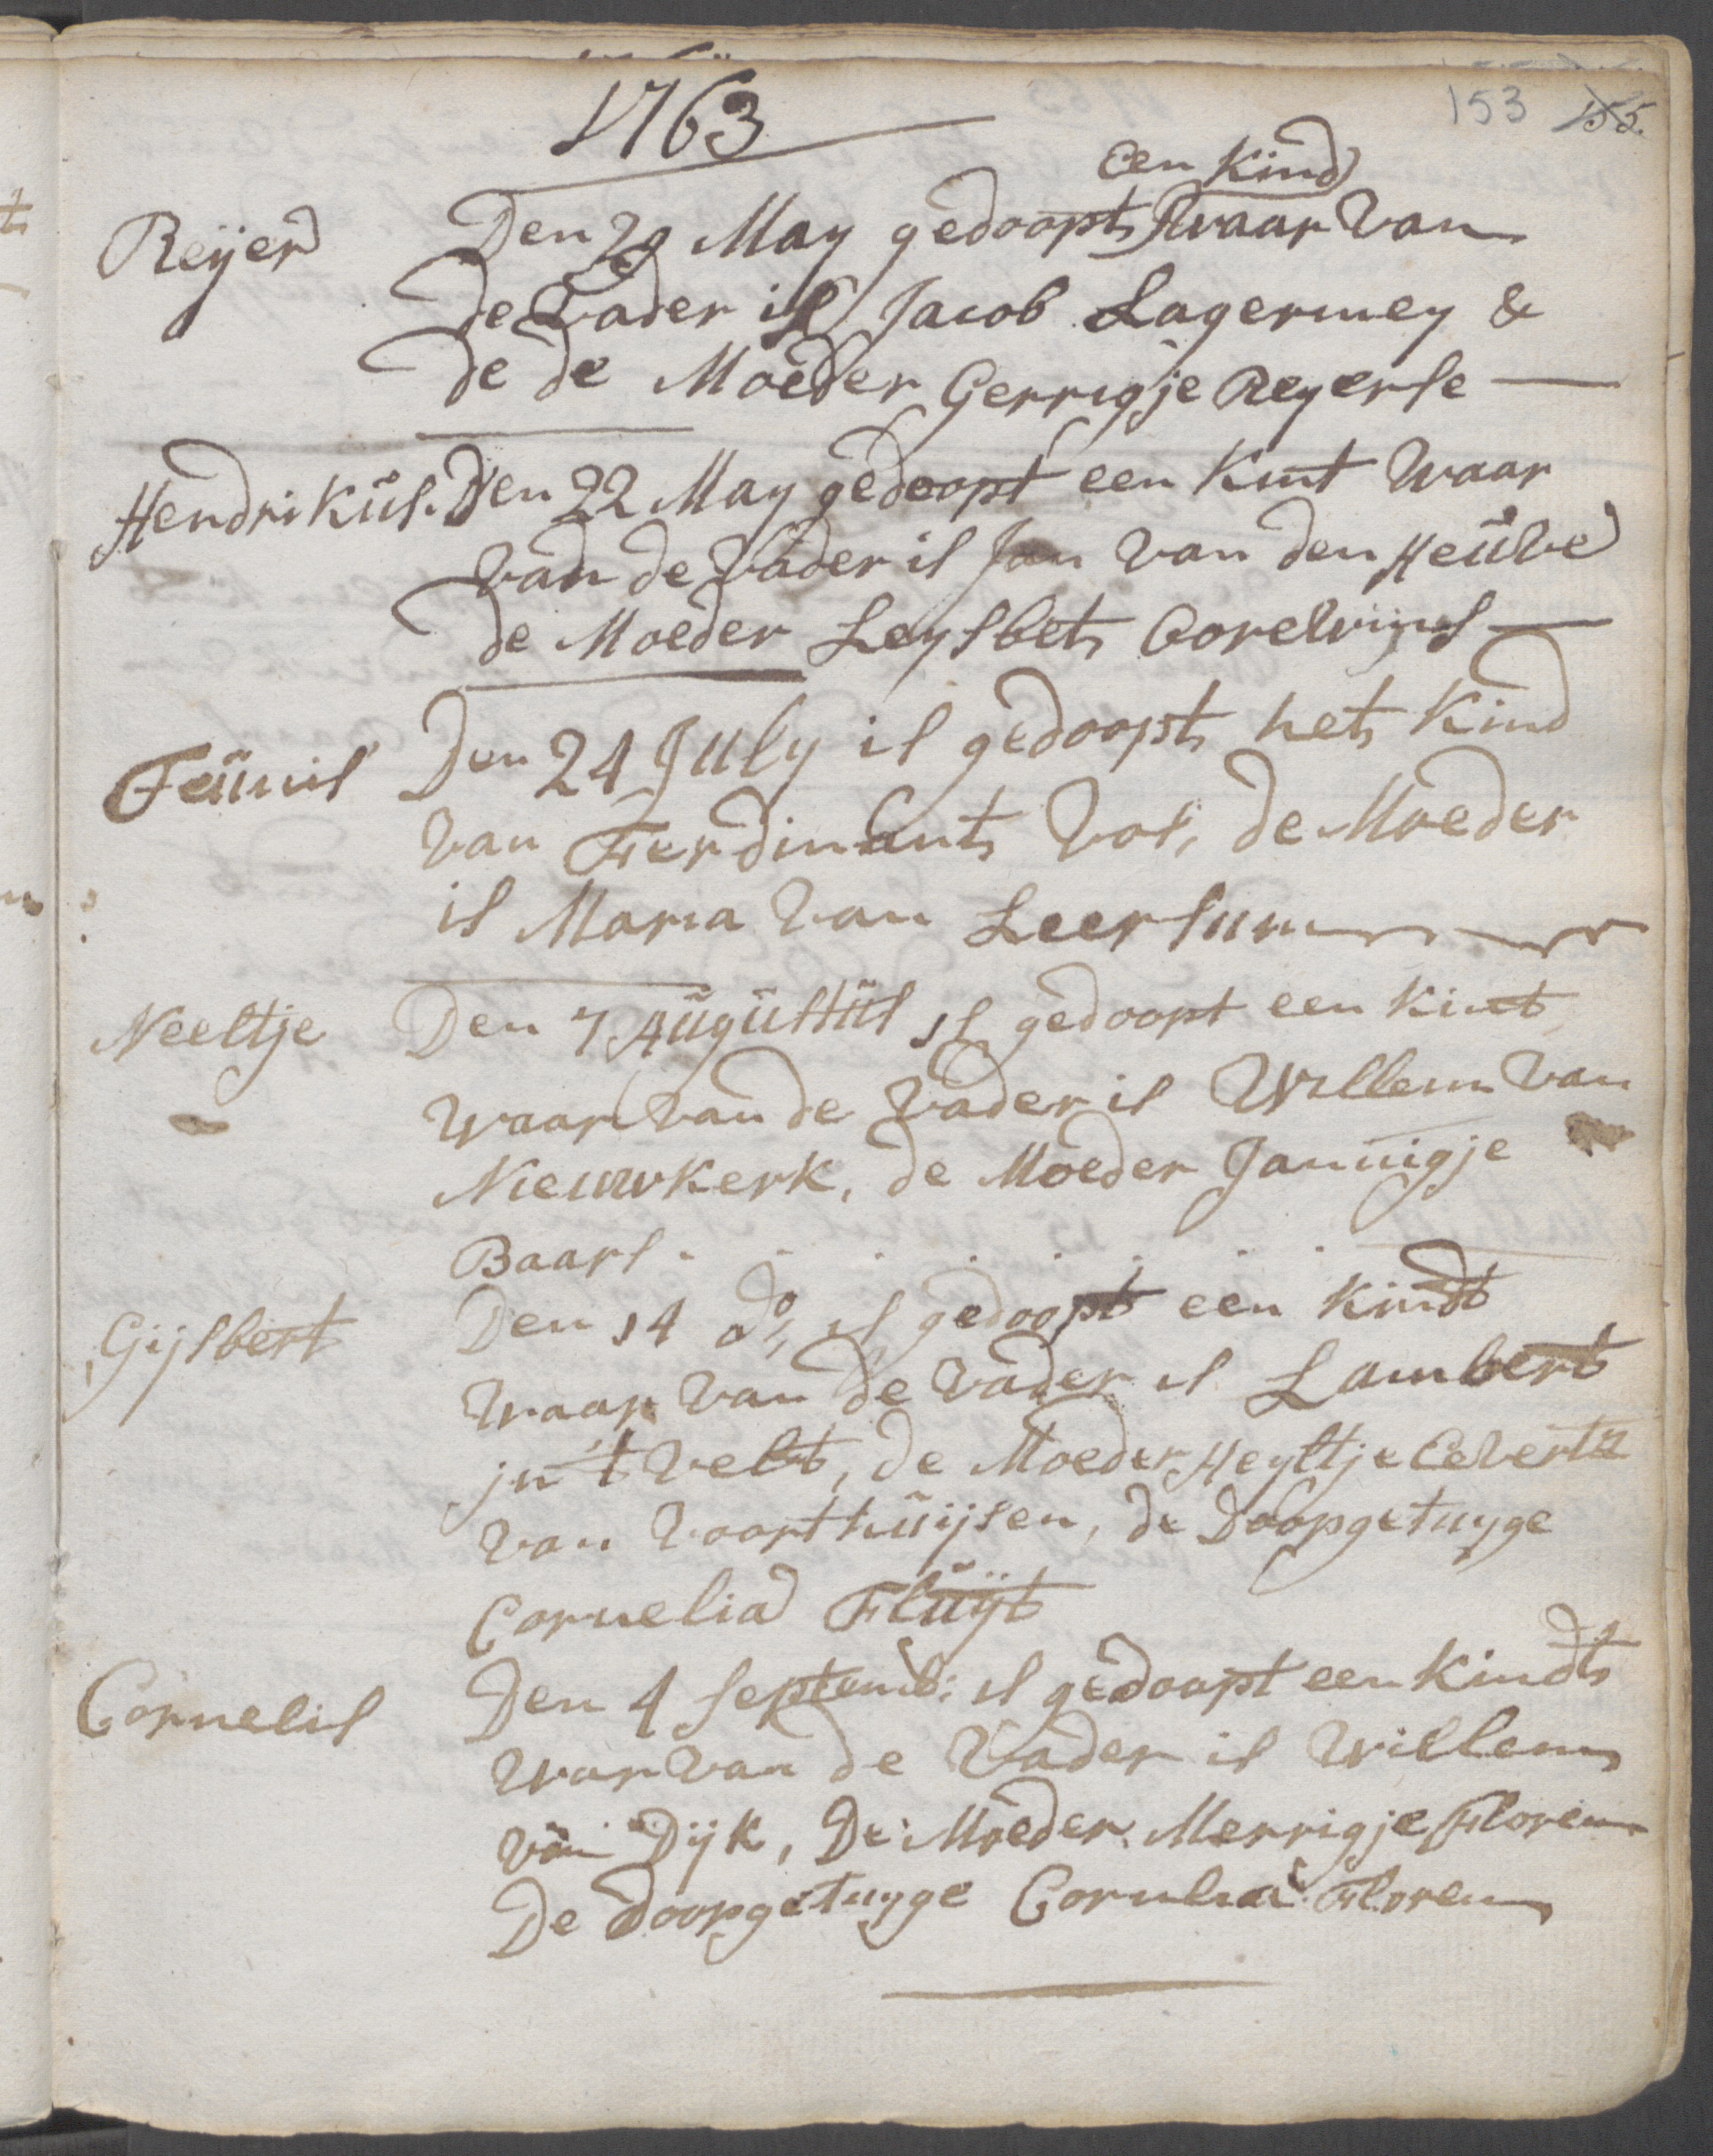 1763
153 155.
Een Kind
Reijer Den 29 May gedoopt waar Van
de Vader is Jacob Lagerwey &
de de Moeder Gerrigje Reyerse
Hendrikus. Den 22 May gedoopt een Kint Waar
Van de Vader is Jan Van den Heuvel
de Moeder Leysbet Corelvijns
Teunis Den 24 July is gedoopt het Kind
Van Ferdinant Vos, de Moeder
is Maria Van Leersum
Neeltje Den 7 Augustus is gedoopt een Kint
Waar Van de Vader is Willem Van
Nieuwkerk, de Moeder Jannigje
Baars.
Gijsbert Den 14 do, is gedoopt een Kindt
Waar Van de Vader is Lambert
in 't Velt, de Moeder Heyltje Evertz
Van Voorthuijsen, de Doopgetuyge
Cornelia Fluijt
Cornelis Den 4 Septemb: is gedoopt een Kindt
War Van de Vader is Willem
van Dijk, De Moeder Merrigje Floren
De Doopgetuyge Cornelia Floren